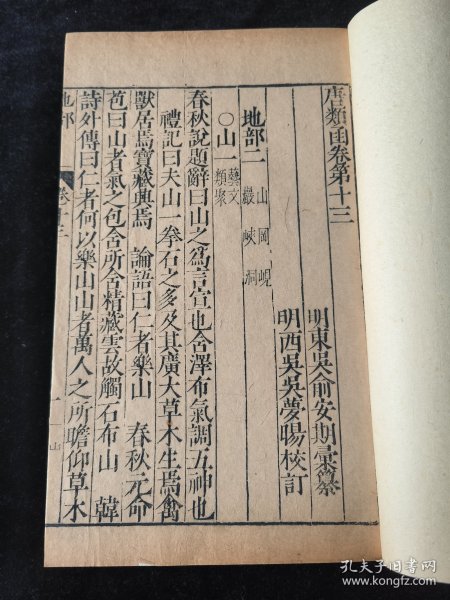 唐類函卷第十三
明東吳俞安期彙纂
明西吳吳夢暘校訂
地部二 山 岡 峴 巖 峽 洞
○山一 藝文類聚
春秋說題辭曰山之爲言宣也含澤布氣調五神也
禮記曰夫山一拳石之多及其廣大草木生焉禽
獸居焉寶藏興焉 論語曰仁者樂山 春秋元命
苞曰山者氣之包含所含精藏雲故觸石布山 韓
詩外傳曰仁者何以樂山山者萬人之所瞻仰草木
地部 卷十三 一 山
孔夫子旧书网
www.kongfz.com